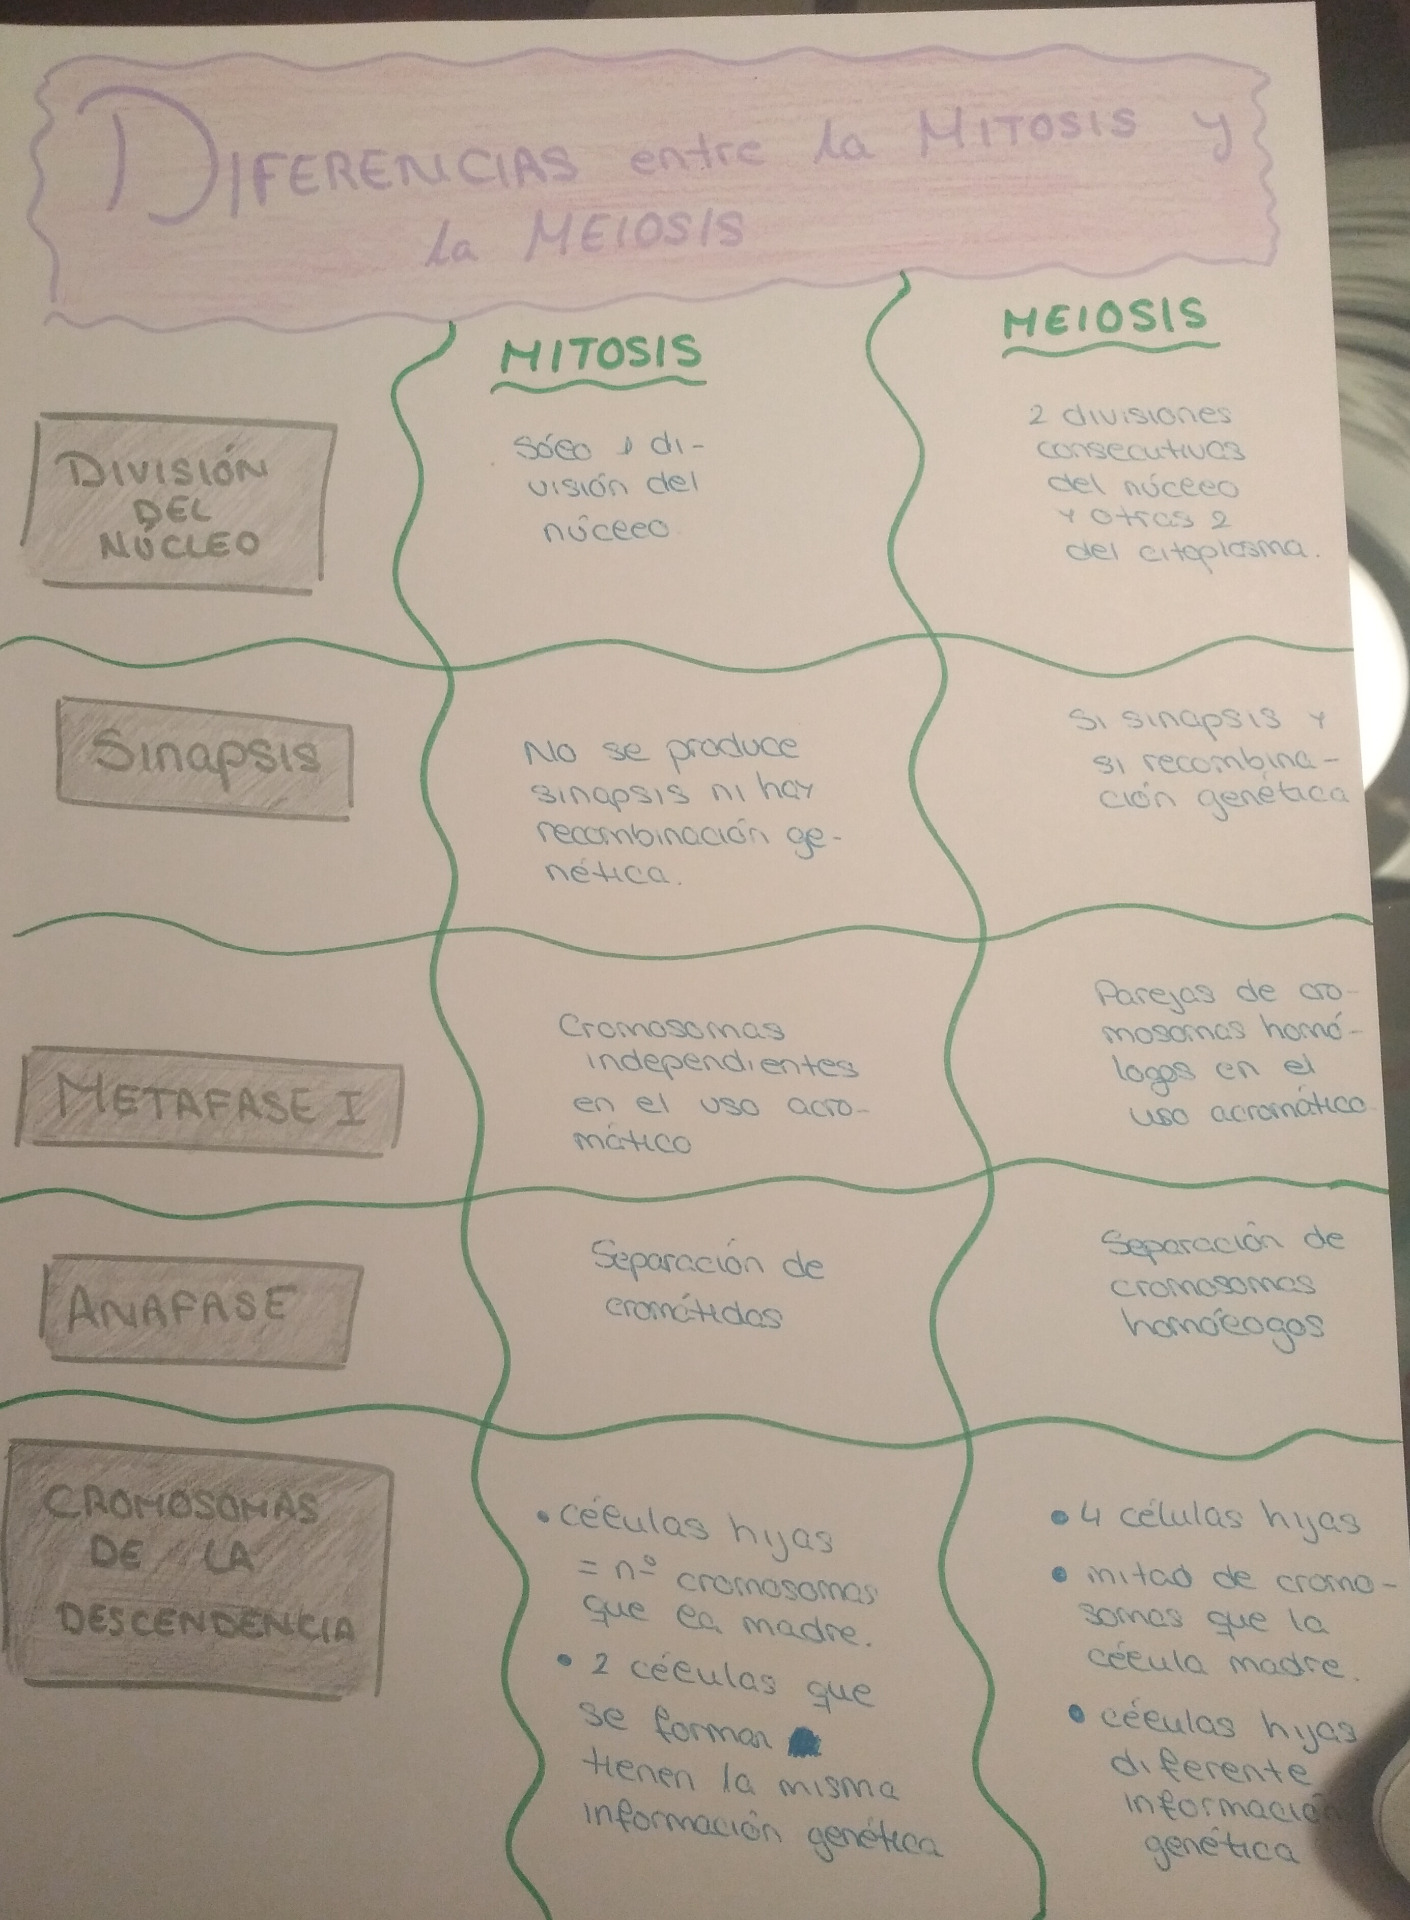 DIFERENCIAS entre la MITOSIS y
la MEIOSIS
MITOSIS
MEIOSIS
DIVISIÓN
DEL
NÚCLEO
Sólo 1 di-
visión del
núcleo
2 divisiones
consecutivas
del núcleo
y otras 2
del citoplasma.
Sinapsis
No se produce
sinapsis ni hay
recombinación ge-
nética.
Si sinapsis y
si recombina-
ción genética
METAFASE I
Cromosomas
independientes
en el uso acro-
mático
Parejas de cro-
mosomas homó-
logos en el
uso acromático
ANAFASE
Separación de
cromátidas
Separación de
cromosomas
homólogos
CROMOSOMAS
DE LA
DESCENDENCIA
• células hijas
= nº cromosomas
que la madre.
• 2 células que
se forman
tienen la misma
información genética
• 4 células hijas
• mitad de cromo-
somas que la
célula madre.
• células hijas
diferente
información
genética